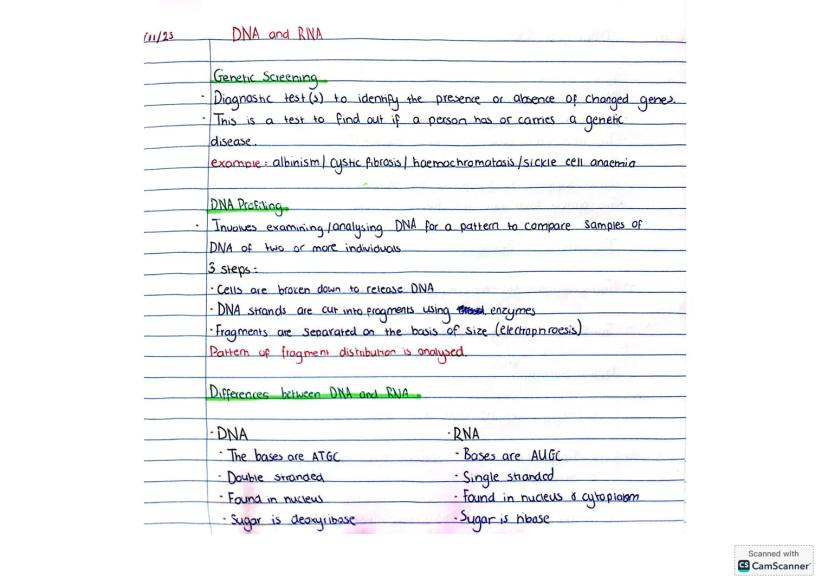 /11/23 DNA and RNA
Genetic Screening
- Diagnostic test(s) to identify the presence or absence of changed genes.
- This is a test to find out if a person has or carries a genetic
disease.
example: albinism/ cystic fibrosis/ haemochromatosis/sickle cell anaemia
DNA Profiling
- Involves examining/analysing DNA for a pattern to compare samples of
DNA of two or more individuals
3 steps:
· Cells are broken down to release DNA
· DNA strands are cut into fragments using enzymes
· Fragments are separated on the basis of size (electophroesis)
Pattern of fragment distribution is analysed.
Differences between DNA and RNA
· DNA · RNA
· The bases are ATGC · Bases are AUGC
· Double stranded · Single stranded
· Found in nucleus · Found in nucleus & cytoplasm
· Sugar is deoxyribose · Sugar is ribose
Scanned with
CS CamScanner